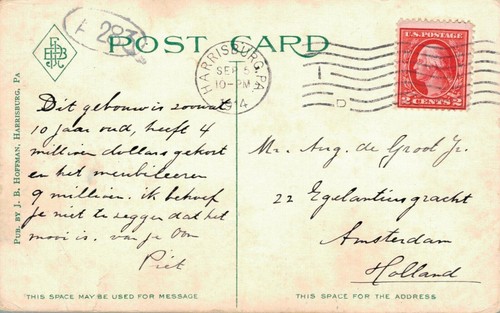 A 283
POST CARD
HARRISBURG, PA.
SEP 5
10-PM
14
U.S. POSTAGE
2 CENTS 2
Dit gebouw is zoowat
10 jaar oud, heeft 4
millioen dollars gekost
en het meubileeren
9 millioen. ik behoef
je niet te zeggen dat het
mooi is. van je Oom
Piet
Mr. Aug. de Groot Jr.
22 Egelantiersgracht
Amsterdam
Holland
PUB. BY J. B. HOFFMAN, HARRISBURG, PA
THIS SPACE MAY BE USED FOR MESSAGE
THIS SPACE IS FOR THE ADDRESS